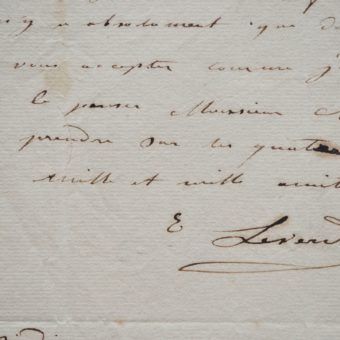 a absolument que d
vous accepter comme j'
le penser Monsieur
prendre sur les quat
mille et mille amit
E Lever